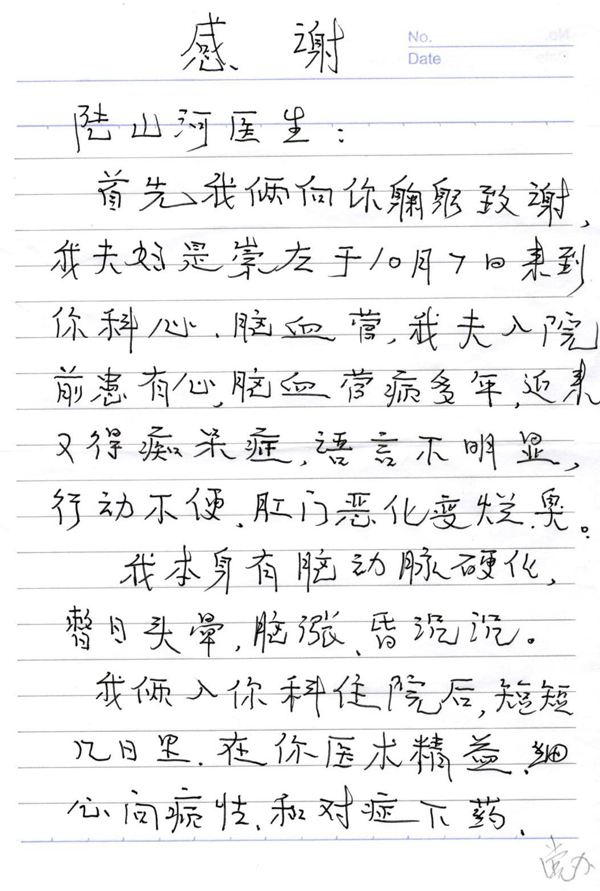 感谢
No.
Date
陆山河医生：
首先我俩向你鞠躬致谢，
我夫妇是崇左于10月7日来到
你科心.脑血管，我夫入院
前患有心,脑血管病多年,近来
又得痴呆症,语言不明显,
行动不便.肛门恶化变烂.臭。
我本身有脑动脉硬化，
整日头晕,脑涨.昏沉沉。
我俩入你科住院后,短短
几日里.在你医术精益.细
心问病情.和对症下药.
党办